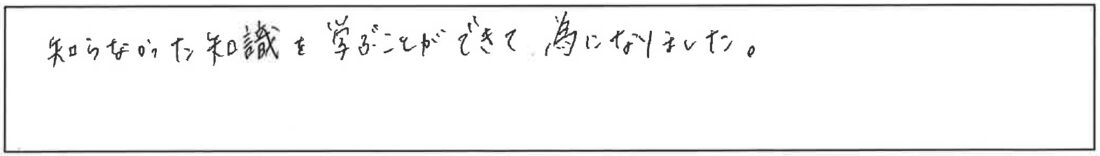 知らなかった知識を学ぶことができて為になりました。